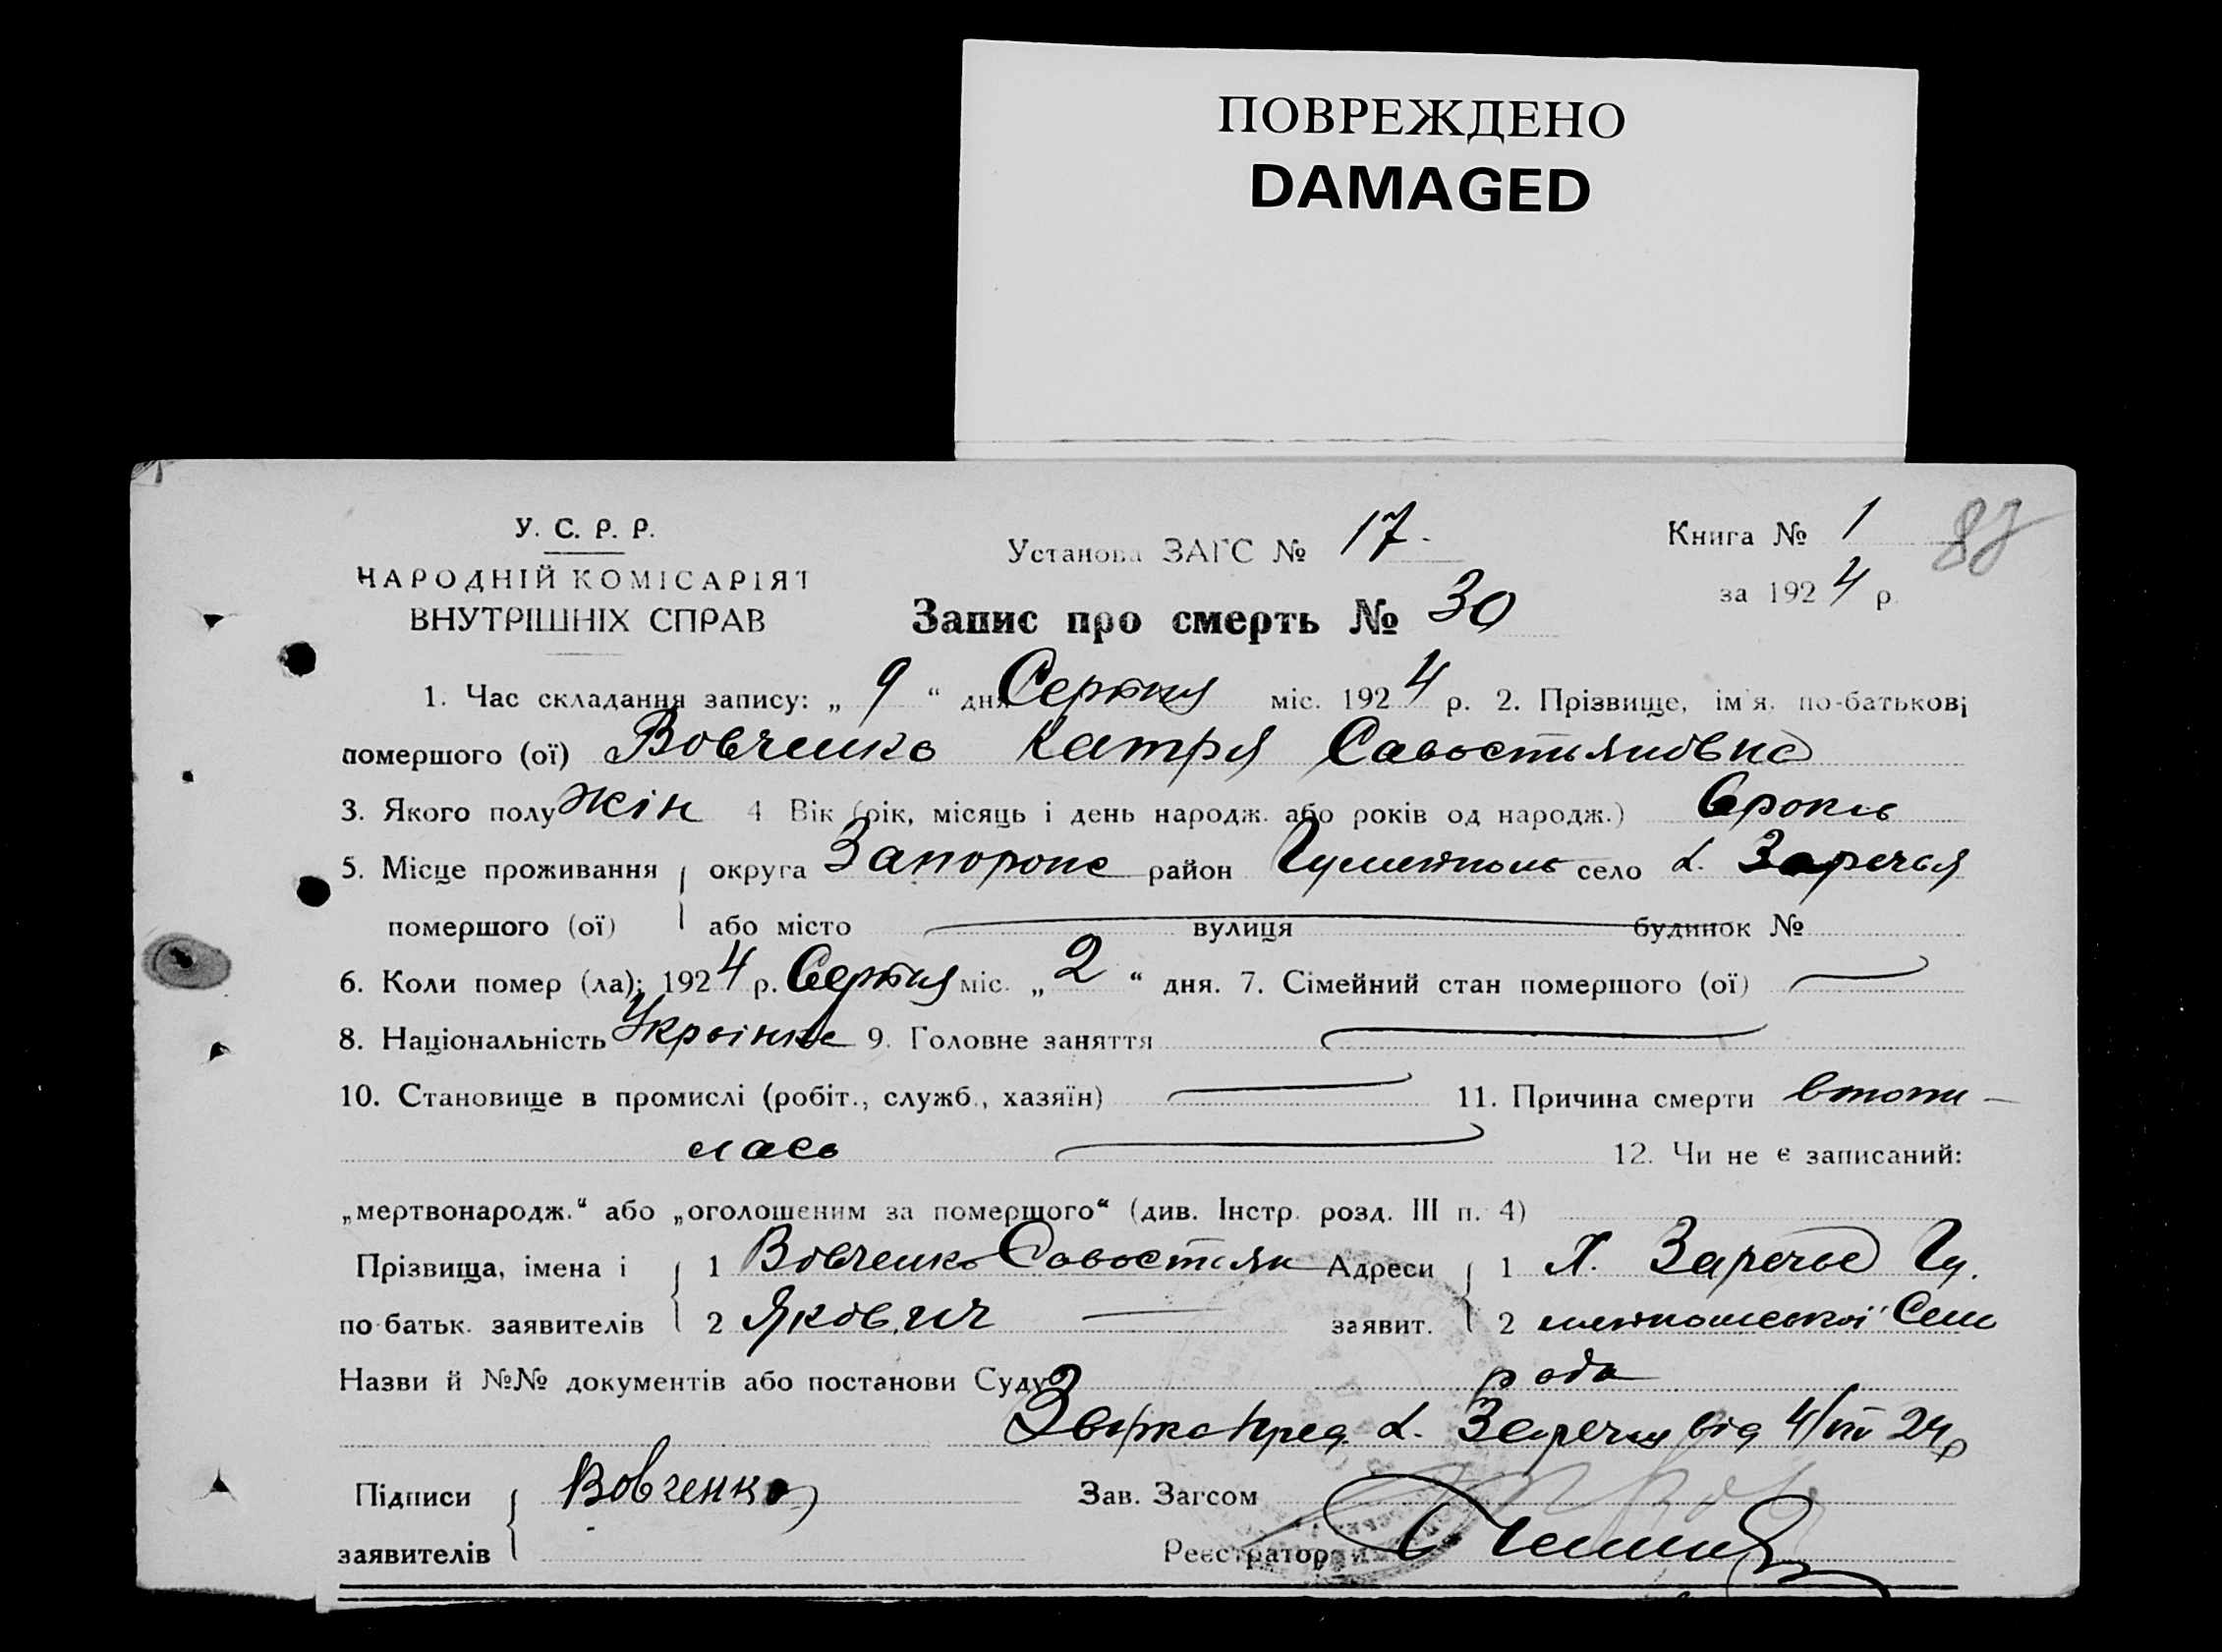 ПОВРЕЖДЕНО
DAMAGED
У. С. Р. Р.
НАРОДНІЙ КОМІСАРІЯТ
ВНУТРІШНІХ СПРАВ
Установа ЗАГС № 17.
Книга № 1
за 1924 р.
Запис про смерть № 30
1. Час складання запису: „ 9 “ дня Серпня міс. 1924 р. 2. Прізвище, ім'я, по-батькові
помершого (ої) Вовченко Катря Савостьянівна
3. Якого полу жін 4 Вік (рік, місяць і день народж. або років од народж.) 6 років
5. Місце проживання округа Запорожс район село х. Заречья
помершого (ої) або місто вулиця будинок №
6. Коли помер (ла): 1924 р. Серпня міс. „ 2 “ дня. 7. Сімейний стан помершого (ої)
8. Національність Українка 9. Головне заняття
10. Становище в промислі (робіт., служб., хазяїн) 11. Причина смерти втопи-
лась 12. Чи не є записаний:
„мертвонародж.“ або „оголошеним за помершого“ (див. Інстр. розд. III п. 4)
Прізвища, імена і 1 Вовченко Савостьян Адреси 1 Х. Заречье Гу.
по-батьк. заявителів 2 Якович заявит. 2 Сель
Назви й №№ документів або постанови Суду рада
пред. х. Заречья від 4/VIII 24 р
Підписи Вовченко Зав. Загсом
заявителів Реєстратор